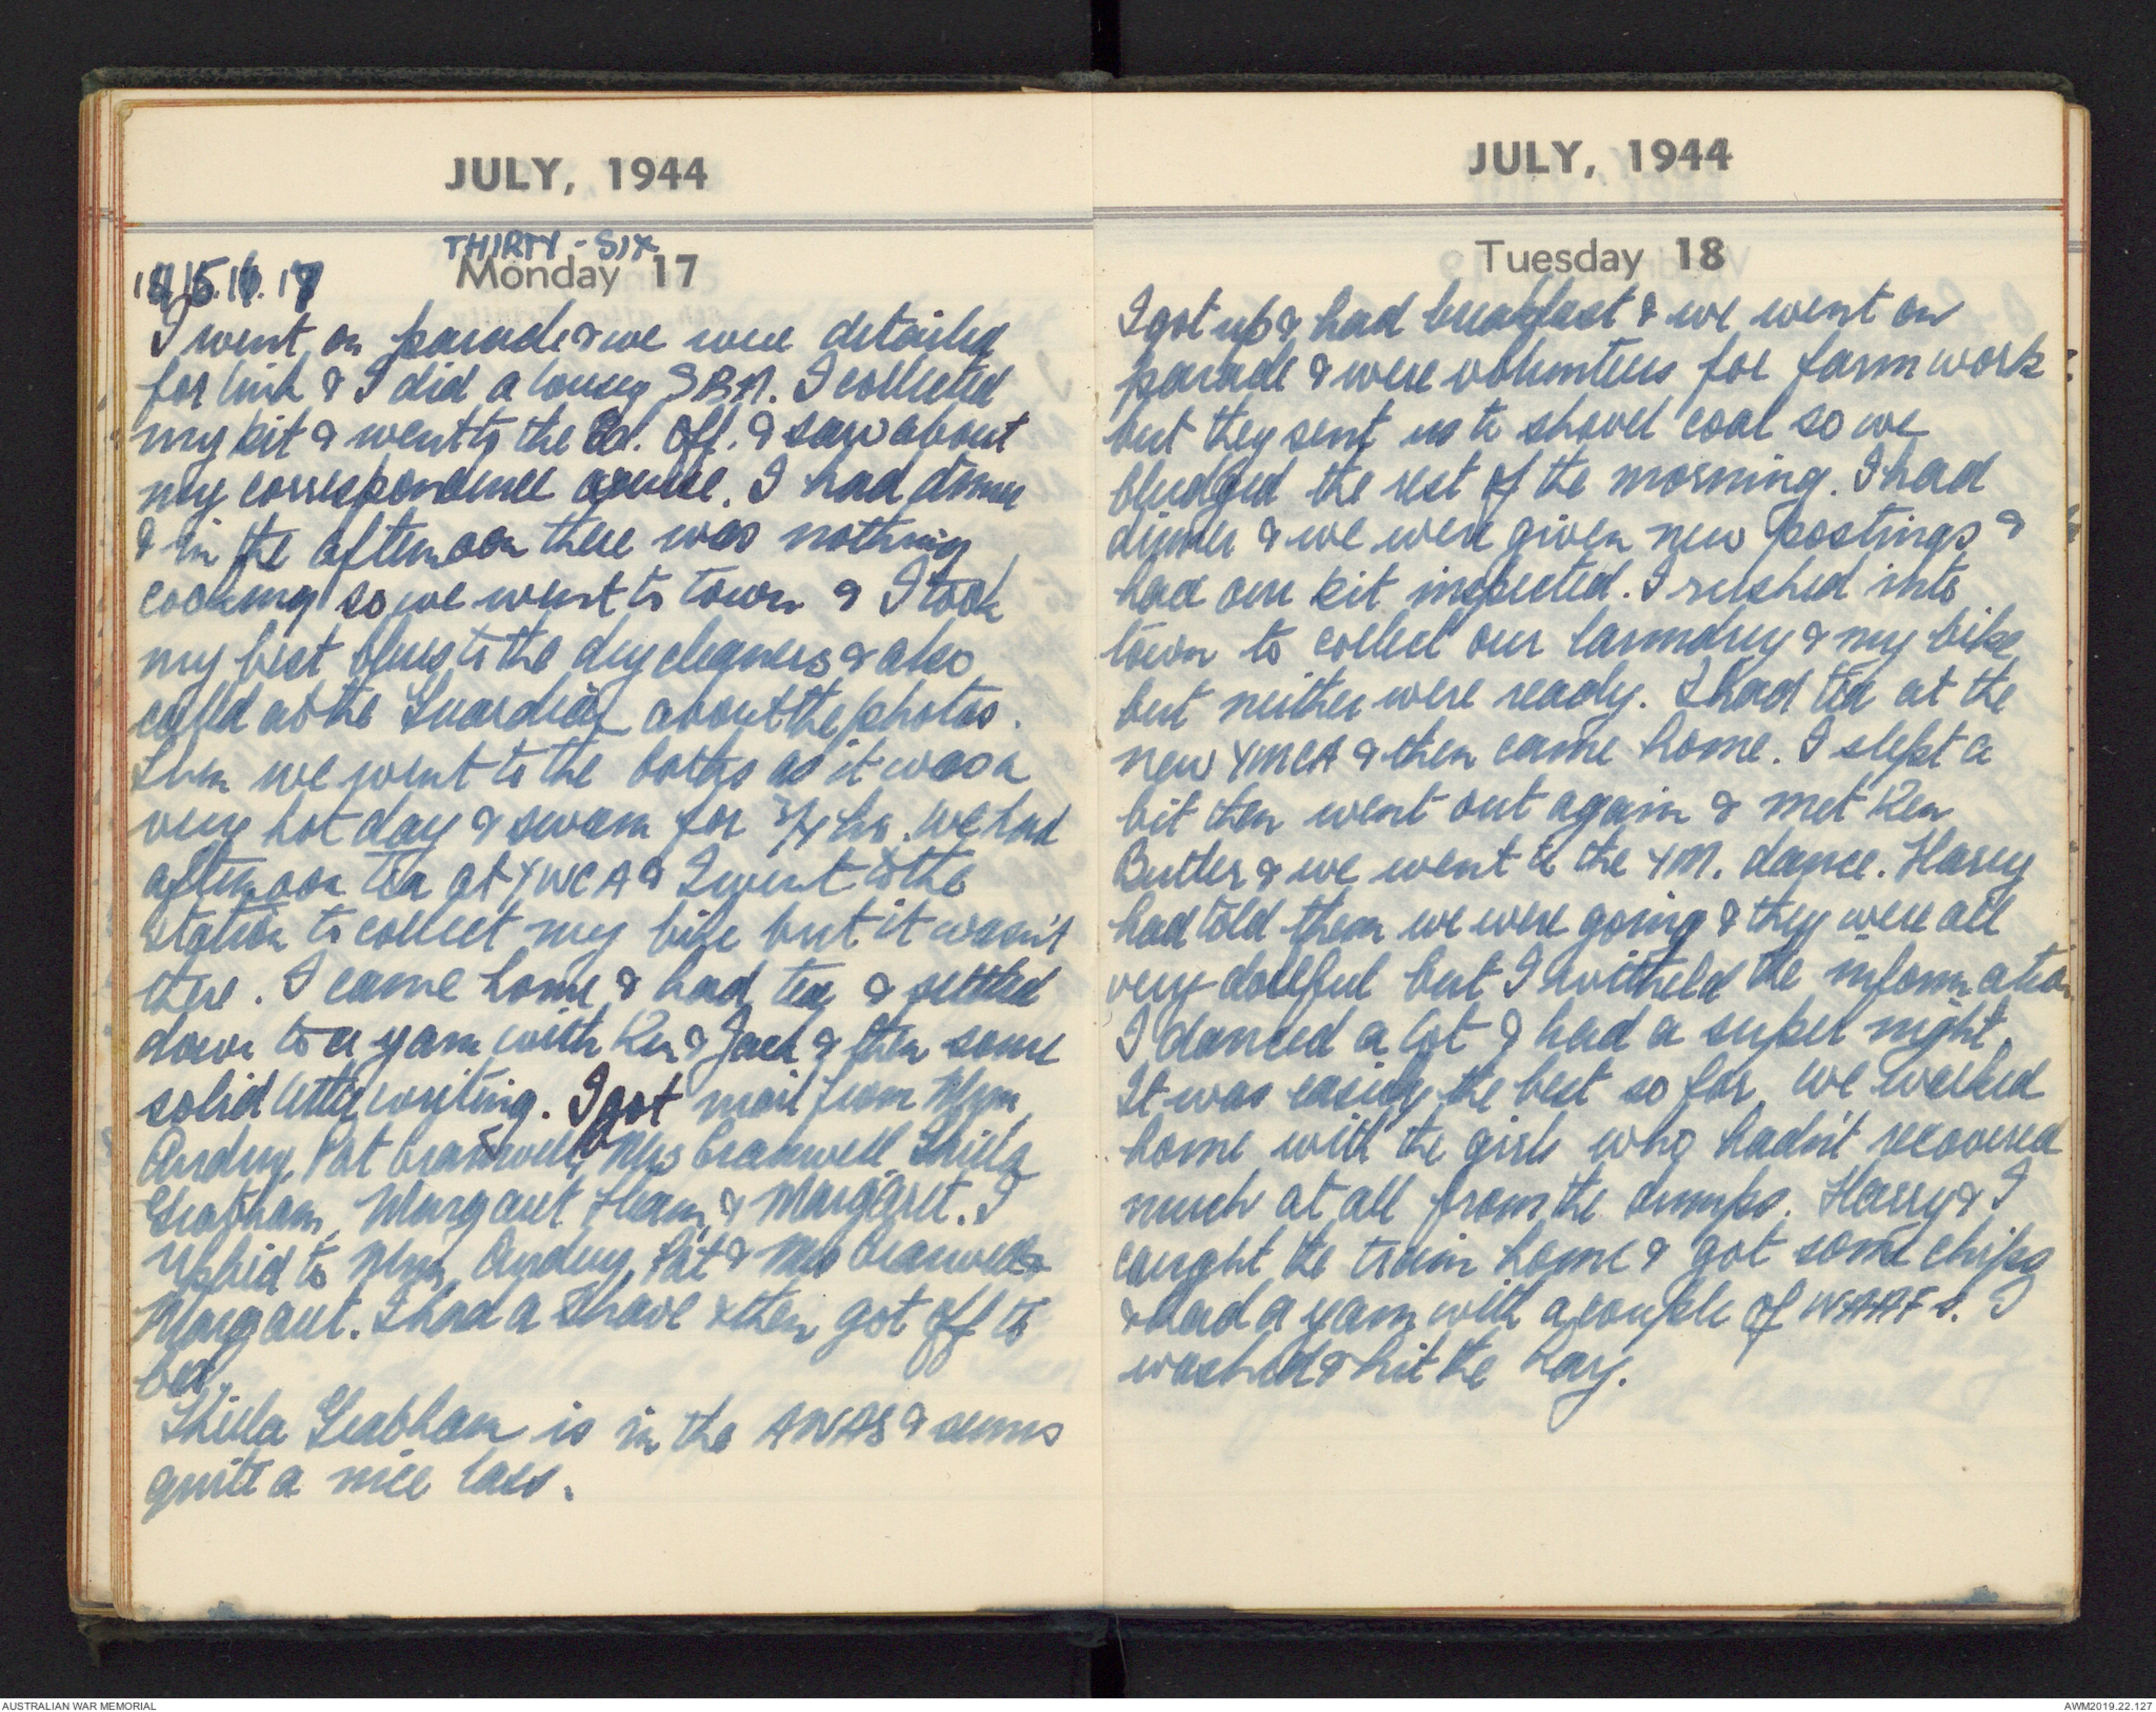 JULY, 1944
THIRTY-SIX
Monday 17
14 15. 16. 17
I went on parade & we were detailed
for link & I did a lousey SBA. I collected
my kit & went to the Ed. Off. & saw about
my correspondence course. I had dinner
& in the afternoon there was nothing
cooking so we went to town & I took
my best blues to the dry cleaners & also
called at the Guardian about the photos.
Then we went to the baths as it was a
very hot day & swam for 3/4 hr. We had
afternoon tea at YWCA & I went to the
station to collect my bike but it wasn't
there. I came home & had tea & settled
down to a yarn with Ken & Jack & then some
solid letter writing. I got mail from Mum,
Audrey, Pat Cranwell, Mrs Cranwell, Shiela
Grabham, Margaret & Margaret. I
replied to Mum, Audrey, Pat & Mrs Cranwell &
Margaret. I had a shave & then got off to
bed.
Shiela Grabham is in the AWAS & seems
quite a nice lass.
JULY, 1944
Tuesday 18
I got up & had breakfast & we went on
parade & were volunteers for farm work
but they sent us to shovel coal so we
bludged the rest of the morning. I had
dinner & we were given new postings &
had our kit inspected. I rushed into
town to collect our laundry & my bike
but neither were ready. I had tea at the
new YMCA & then came home. I slept a
bit then went out again & met Ken
Butler & we went to the YM. dance. Harry
had told them we were going & they were all
very doleful but I witheld the information
I danced a lot & had a super night.
It was easily the best so far. We walked
home with the girls who hadn't recovered
much at all from the dumps. Harry & I
caught the train home & got some chips
& had a yarn with a couple of WAAFs. I
washed & hit the hay.
AUSTRALIAN WAR MEMORIAL
AWM2019.22.127